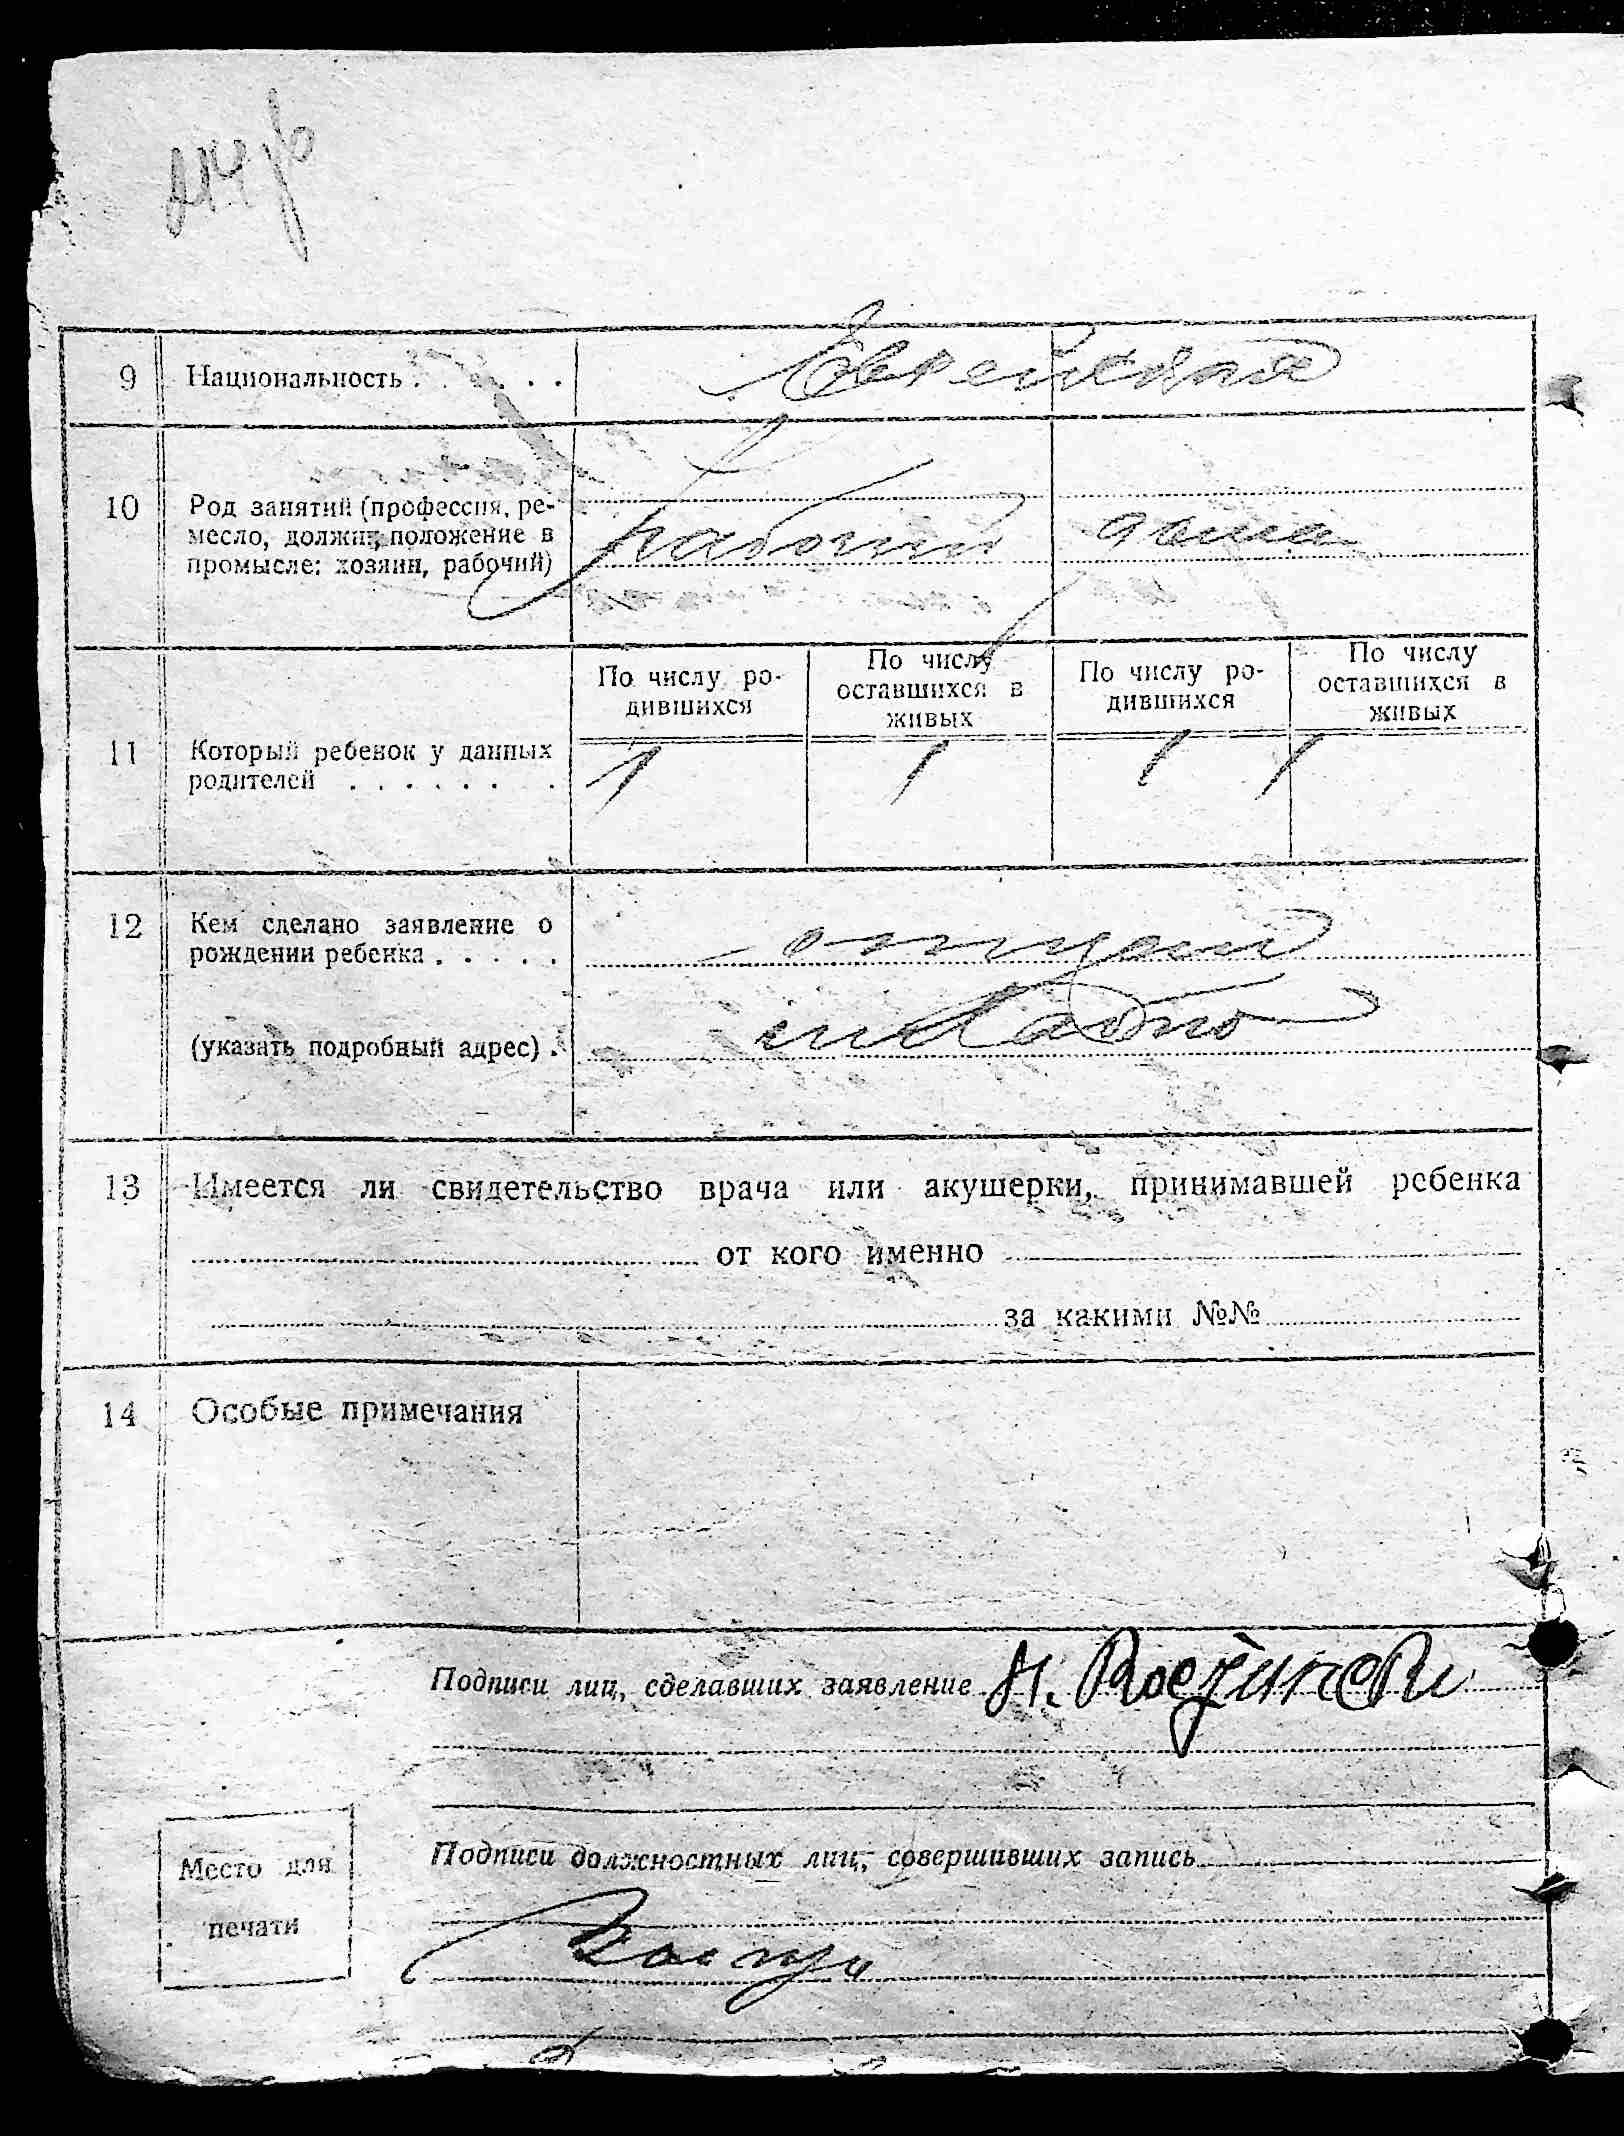 9 Национальность . . . . . . Еврейская
10 Род занятий (профессия, ре-
месло, должн., положение в
промысле: хозяин, рабочий) рабочий дома
По числу ро-
дившихся
По числу
оставшихся в
живых
По числу ро-
дившихся
По числу
оставшихся в
живых
11 Который ребенок у данных
родителей . . . . . . . 1 1 1 1
12 Кем сделано заявление о
рождении ребенка . . . . . отцом
(указать подробный адрес) .
13 Имеется ли свидетельство врача или акушерки, принимавшей ребенка
от кого именно
за какими №№
14 Особые примечания
Подписи лиц, сделавших заявление
Место для
печати
Подписи должностных лиц, совершивших запись